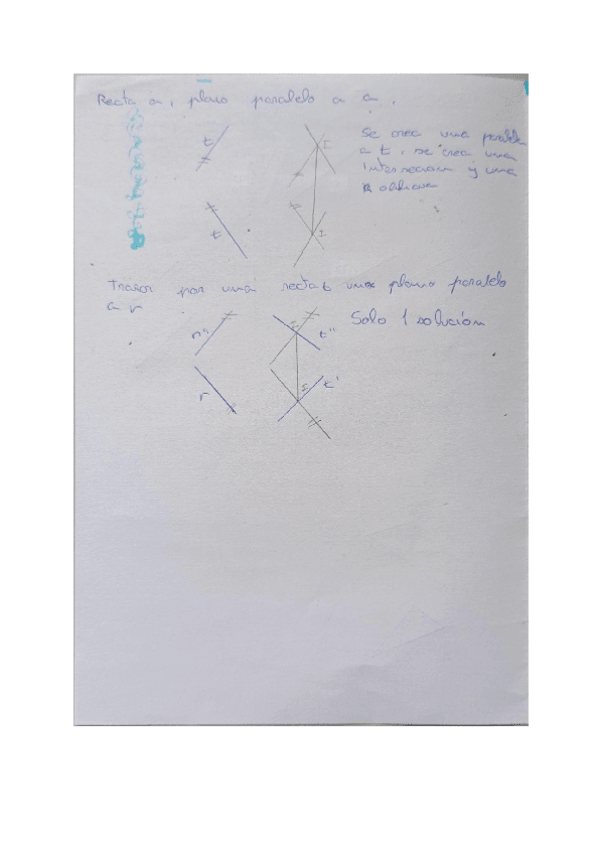 Recta a, plano paralelo a a.
Se crea una paralela
a t, se crea una
intersección y una
R oblicua
t
I
t
I
Trazar por una recta t una plano paralelo
a r
Solo 1 solución
r"
t"
I
r
t'